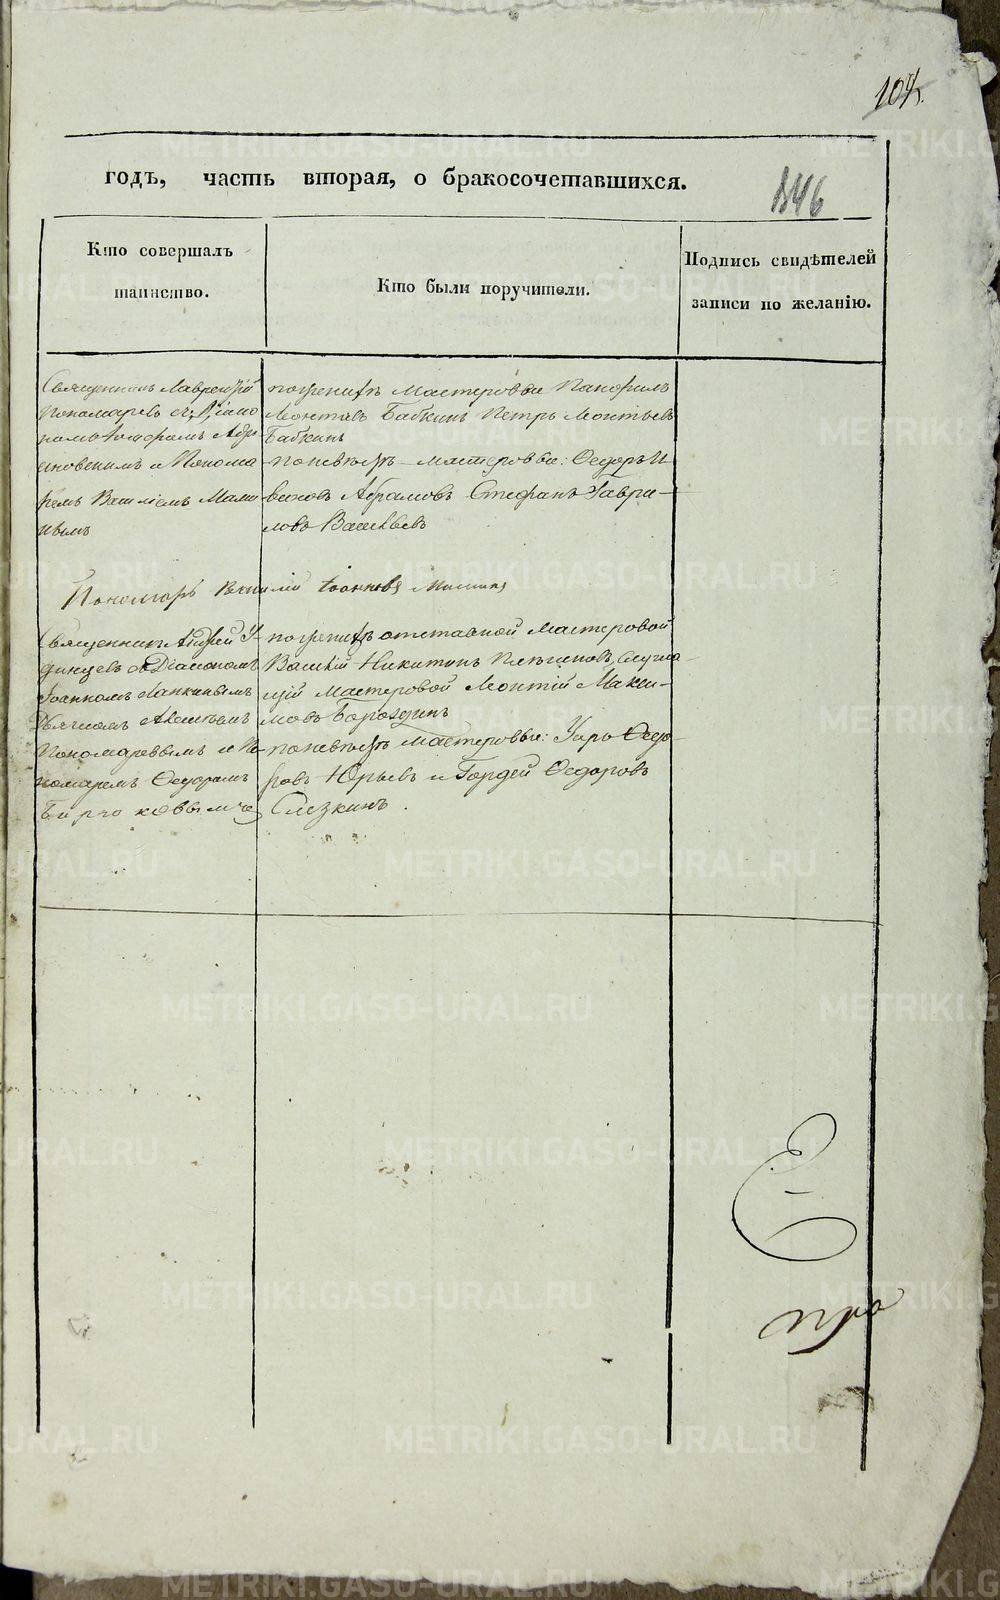 104.
годъ, часть вторая, о бракосочетавшихся.
846
Кто совершалъ
таинство.
Кто были поручители.
Подпись свидѣтелей
записи по желанію.
Священникъ Лаврентій
Пономаревъ съ Діако
номъ
и Понома
ремъ Василіемъ Мами
нымъ
по женихѣ Мастеровые Панфилъ
Монтѣевъ Бабкинъ Петръ Монтѣевъ
Бабкинъ
по невѣстѣ мастеровые: Федоръ И
вановъ Абрамовъ Стефанъ Гаври-
ловъ Васильевъ
Пономарь Василій Іоанновъ Маминъ
Священникъ Андрей У-
динцевъ съ Діакономъ
Іоанномъ Ляпкинымъ
Дьячкомъ Алексѣемъ
Пономаревымъ и По
номаремъ Федоромъ
Бирюковымъ
по женихѣ отставной Мастеровой
Василій Никитинъ служа
щій мастеровой Монтій Макси-
мовъ Бороздинъ
по невѣстѣ мастеровые: Уаръ Федо-
ровъ Юрьевъ и Гордей Федоровъ
Слезкинъ.
METRIKI.GASO-URAL.RU